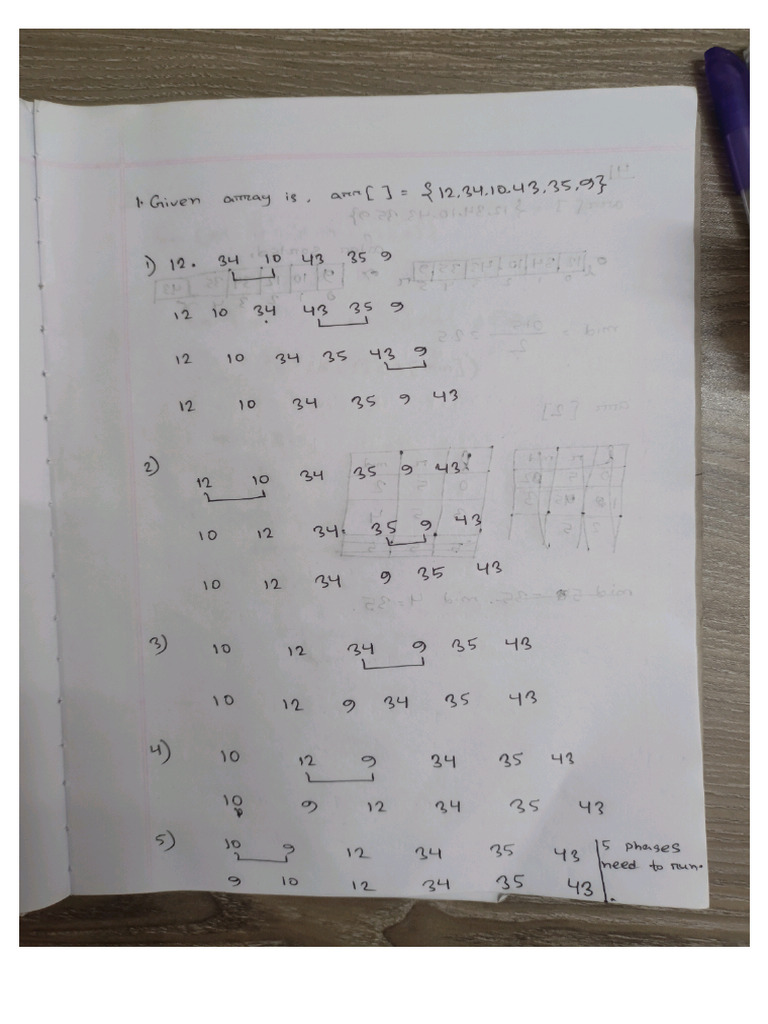 1. Given array is, arr[ ] = {12.34.10.43.35.9}
1) 12. 34 10 43 35 9
12 10 34 43 35 9
12 10 34 35 43 9
12 10 34 35 9 43
2) 12 10 34 35 9 43
10 12 34 35 9 43
10 12 34 9 35 43
3) 10 12 34 9 35 43
10 12 9 34 35 43
4) 10 12 9 34 35 43
10 9 12 34 35 43
5) 10 9 12 34 35 43
9 10 12 34 35 43
5 phases
need to run.